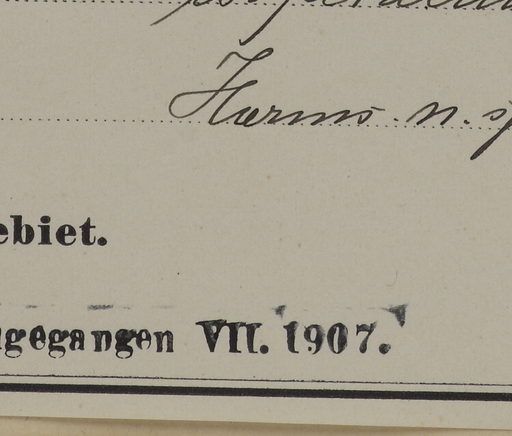 Harms. n. sp
ebiet.
ngegangen VII. 1907.